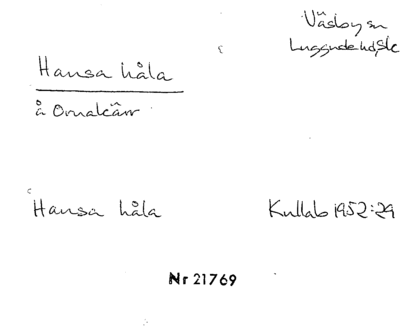 Väsby sn
Luggude hd, Sk
Hansa håla
å Ornakärr
Hansa håla
Kullab 1952:29
Nr 21769